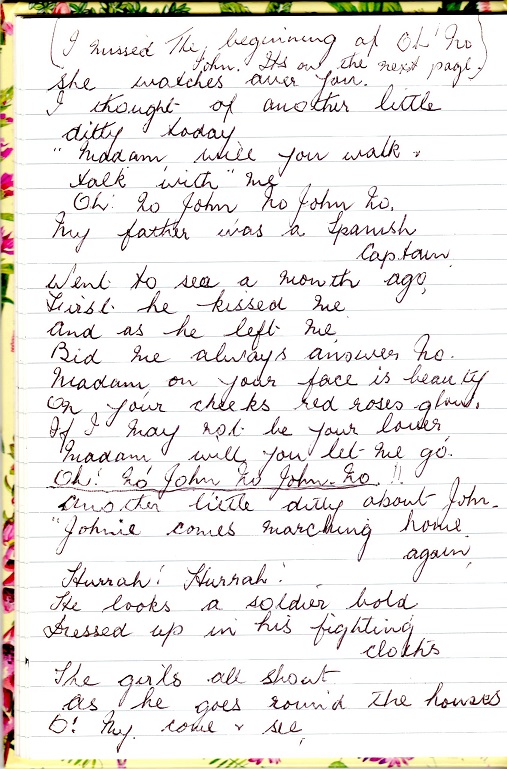 (I missed the beginning of Oh! No
John. Its on the next page)
She watches over you.
I thought of another little
ditty today
"Madam will you walk &
talk with" me
Oh! No John No John No.
My father was a Spanish
Captain
Went to sea a month ago,
First he kissed me
And as he left me
Bid me always answer No.
Madam on your face is beauty
On your cheeks red roses glow.
If I may not be your lover
Madam will you let me go.
Oh! No John No John No !!
Another little ditty about John.
"Johnie comes marching home
again
Hurrah! Hurrah!
He looks a soldier bold
Dressed up in his fighting
cloths
The girls all shout
as he goes round the houses
O! My come & see